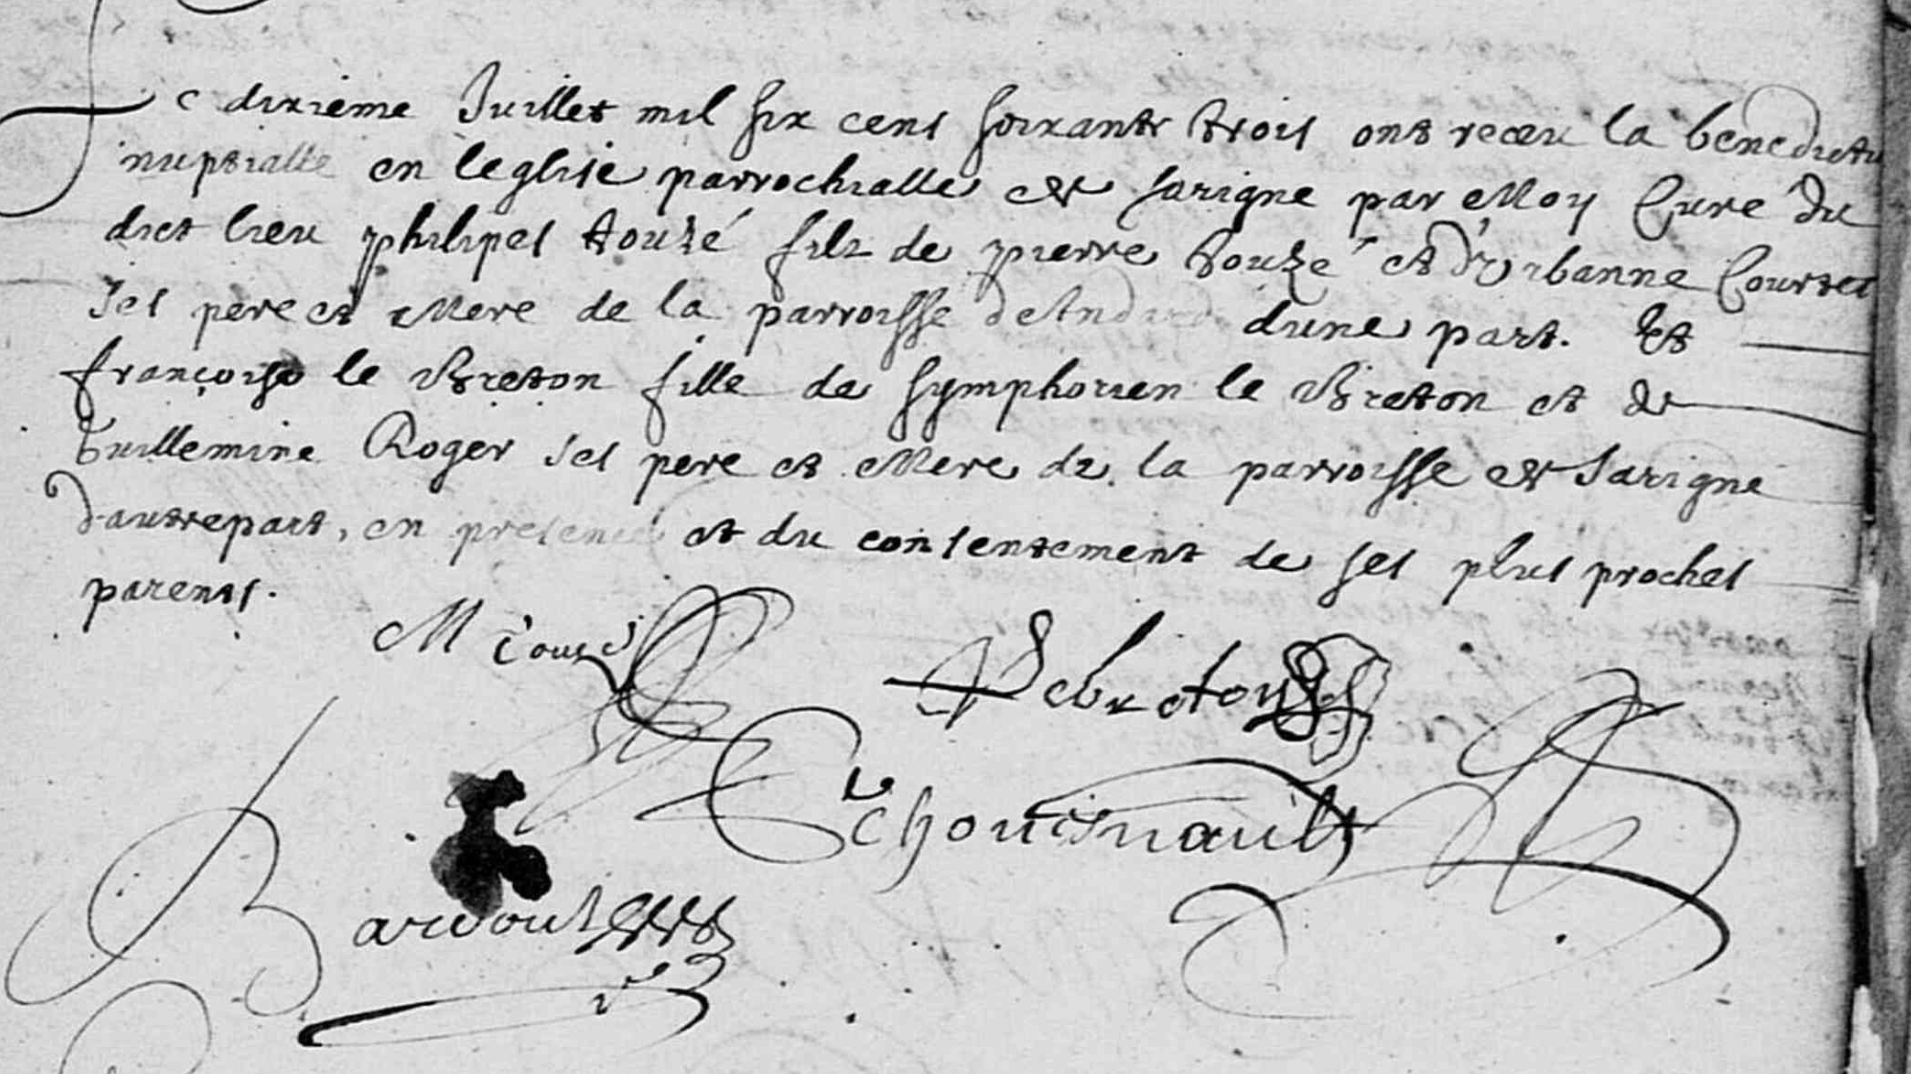 Le dixieme Juillet mil six cens soixante trois ont receu la benedictio
nuptialle en leglise parrochialle de Sarigne par Moy Curé du
dict lieu philipes touzé filz de pierre touzé et d'Urbanne Courtet
ses pere et Mere de la parroisse d'Andard dune part. Et
françoise le Breton fille de symphorien le Breton et de
Guillemine Roger ses pere et Mere de la parroisse de Sarigne
d'autrepart, en presence et du consentement de ses plus proches
parents.
M Touzé
Lebreton
Echouesnault
Bardoul